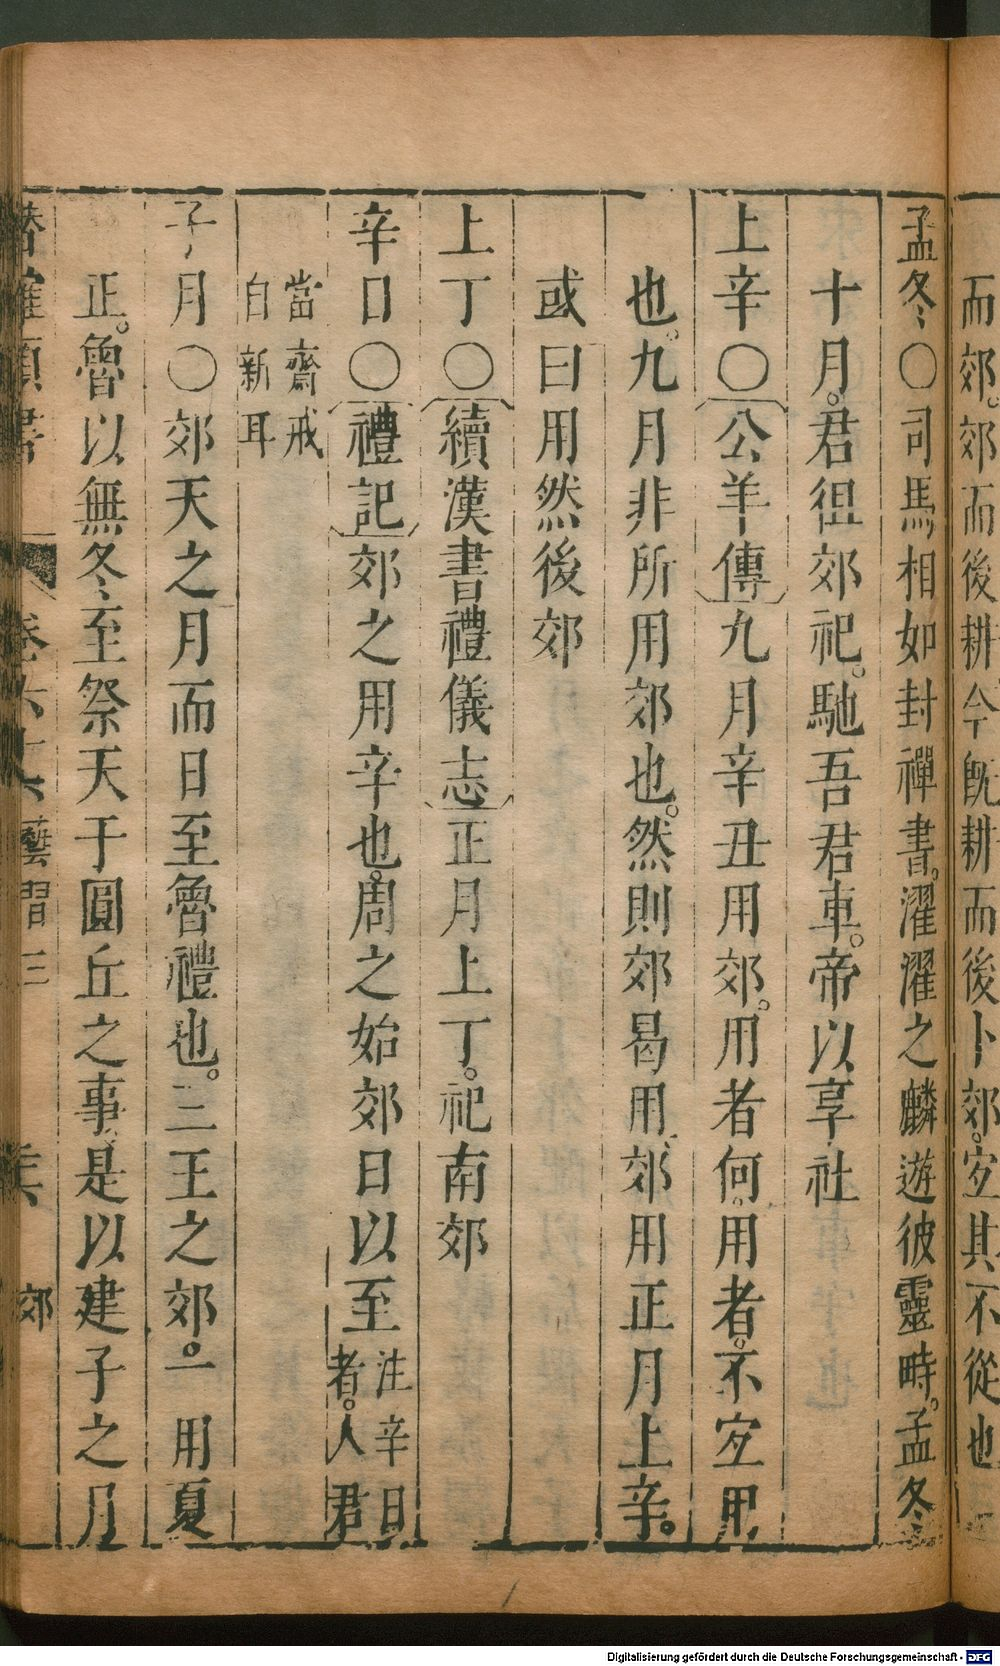 而郊。郊而後耕今旣耕而後卜郊。宜其不從也
孟冬〇司馬相如封禪書。濯濯之麟遊彼靈畤。孟冬
十月。君徂郊祀。馳吾君車。帝以享祉
上辛〇公羊傳九月辛丑用郊。用者何。用者。不宜用
也。九月非所用郊也。然則郊曷用郊用正月上辛。
或曰用然後郊
上丁〇續漢書禮儀志正月上丁。祀南郊
辛日〇禮記郊之用辛也。周之始郊日以至注辛日
者。人君
當齋戒
自新耳
子月〇郊天之月而日至魯禮也。三王之郊。一用夏
正。魯以無冬至祭天于圓丘之事是以建子之月
卷六十六 藝習三 郊
Digitalisierung gefördert durch die Deutsche Forschungsgemeinschaft - DFG